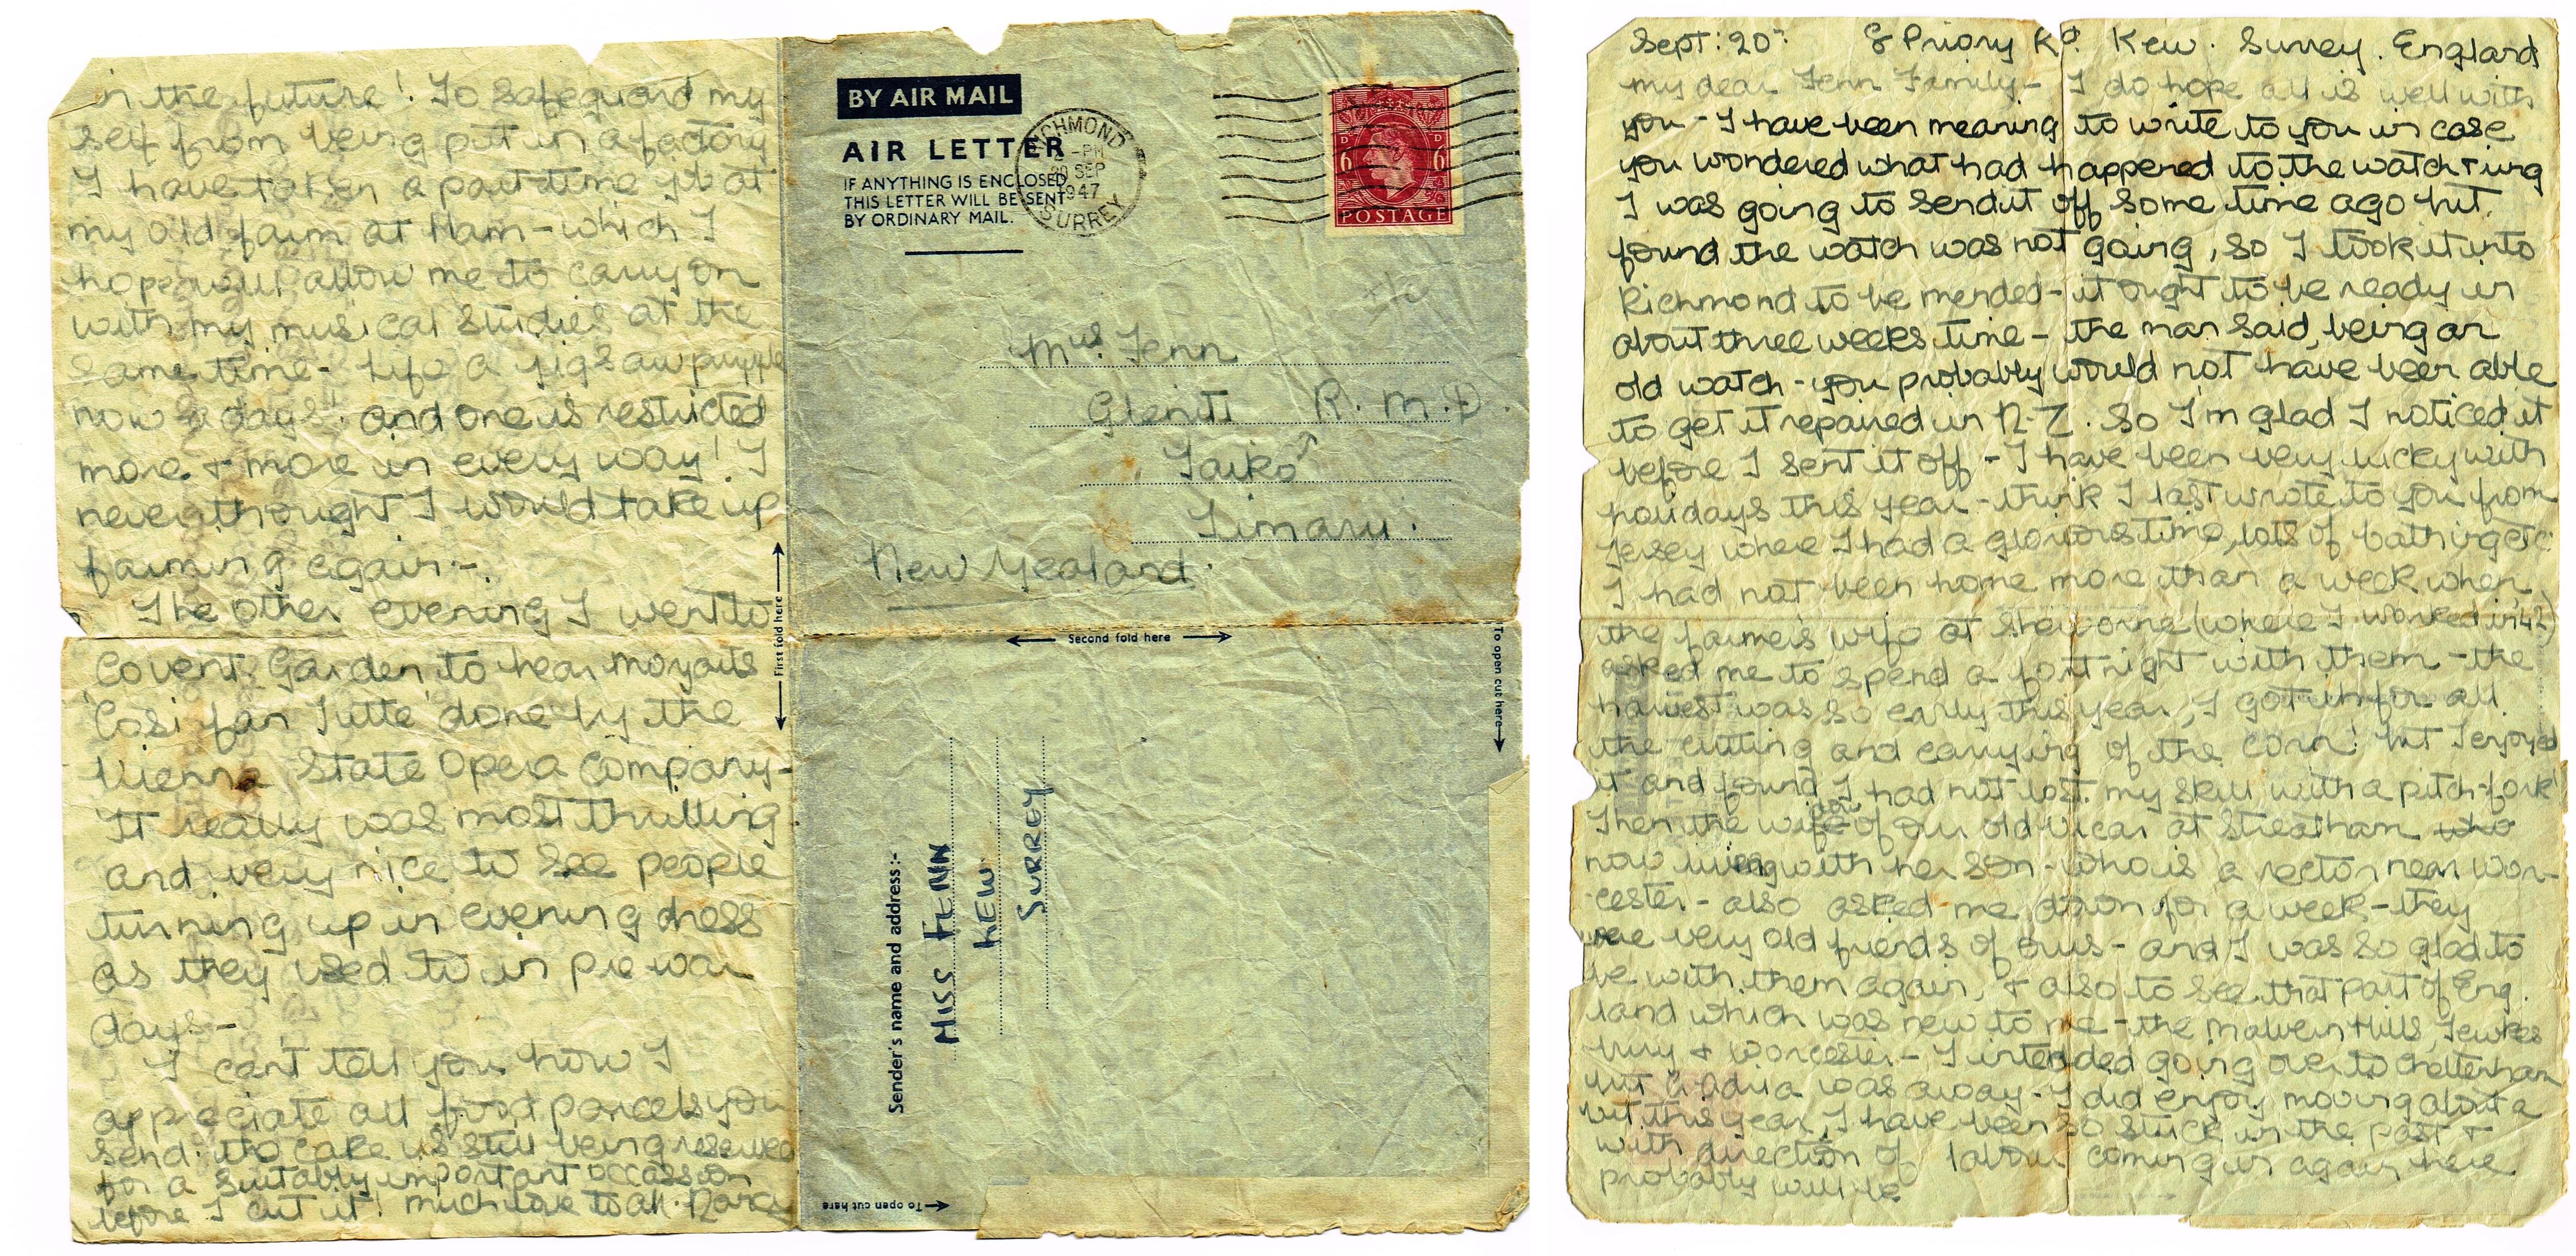 in the future! To safeguard my
self from being put in a factory
I have taken a part time job at
my old farm at Ham - which I
hope will allow me to carry on
with my musical studies at the
same time - Life a jigsaw puzzle
now a days! and one is restricted
more & more in every way! I
never thought I would take up
farming again -.
The other evening I went to
'Covent Garden' to hear Mozarts
'Cosi fan Tutte' done by the
Vienna State Opera Company -
It really was most thrilling
and very nice to see people
turning up in evening dress
as they used to in pre war
days -
I can't tell you how I
appreciate all food parcels you
send. the cake is still being reserved
for a suitably important occassion
before I cut it! much love to all. Nora
BY AIR MAIL
AIR LETTER
IF ANYTHING IS ENCLOSED
THIS LETTER WILL BE SENT
BY ORDINARY MAIL.
RICHMOND
-PM
20 SEP
1947
SURREY
D D
6 6
POSTAGE
Mrs. Fenn
Gleniti R.M.D.
Taiko
Timaru.
New Zealand.
First fold here
Second fold here
To open cut here
Sender's name and address:-
MISS FENN
KEW
SURREY
To open cut here
Sept: 20th 8 Priory Rd. Kew. Surrey. England
my dear Fenn Family - I do hope all is well with
you - I have been meaning to write to you in case
you wondered what had happened to the watch & ring
I was going to send it off some time ago but
found the watch was not going, so I took it into
Richmond to be mended - it ought to be ready in
about three weeks time - the man said, being an
old watch - you probably would not have been able
to get it repaired in N-Z. so I'm glad I noticed it
before I sent it off - I have been very lucky with
holidays this year - think I last wrote to you from
Jersey where I had a glorious time, lots of bathing etc
I had not been home more than a week when
the farmers wife at Sherborne (where I worked in 42)
asked me to spend a fortnight with them - the
harvest was so early this year, I got in for all
the cutting and carrying of the corn! but I enjoyed
it and found I had not lost my skill with a pitch-fork
Then the wife of our old vicar at Streatham who
now living with her son - who is a rector near Wor-
cester - also asked me down for a week - they
are very old friends of ours - and I was so glad to
be with them again, & also to see that part of Eng.
land which was new to me - the Malvern Hills, Tewkes
bury & Worcester - I intended going over to Cheltenham
but was away - I did enjoy moving about a
bit this year, I have been so stuck in the past &
with direction of labour coming in again here
probably will be